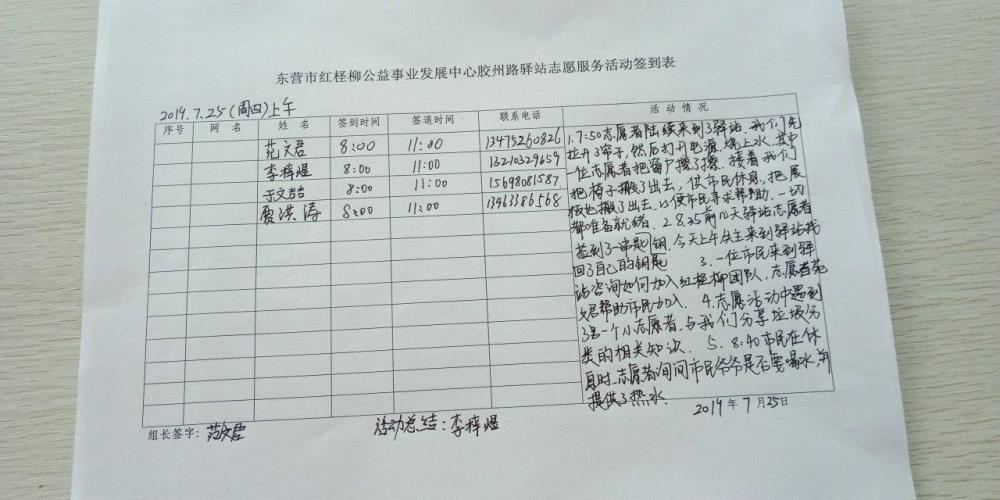 东营市红柽柳公益事业发展中心胶州路驿站志愿服务活动签到表
2019.7.25(周四)上午
序号 网名 姓名 签到时间 签退时间 联系电话 活动情况
范文君 8:00 11:00 13475260826
李梓煜 8:00 11:00 13210329659
于文喆 8:00 11:00 15698081587
贾洪涛 8:00 11:00 13963386568
1.7:50志愿者陆续来到了驿站,我们先
拉开了帘子,然后打开电源,烧上水,其中
一位志愿者把窗户擦了擦,接着我们
把椅子搬了出去,供市民休息,把展
板也搬了出去,以便市民寻求帮助,一切
都准备就绪. 2.8.25前几天驿站志愿者
捡到了一串匙钥,今天上午失主来到驿站找
回了自己的钥匙 3.一位市民来到驿
站咨询如何加入红柽柳团队,志愿者范
文君帮助市民加入. 4.志愿活动中遇到
了另一个小志愿者,与我们分享垃圾分
类的相关知识. 5. 8:40市民在休
息时,志愿者询问市民爷爷是否要喝水,并
提供了热水.
2019年7月25日
组长签字:范文君 活动总结:李梓煜